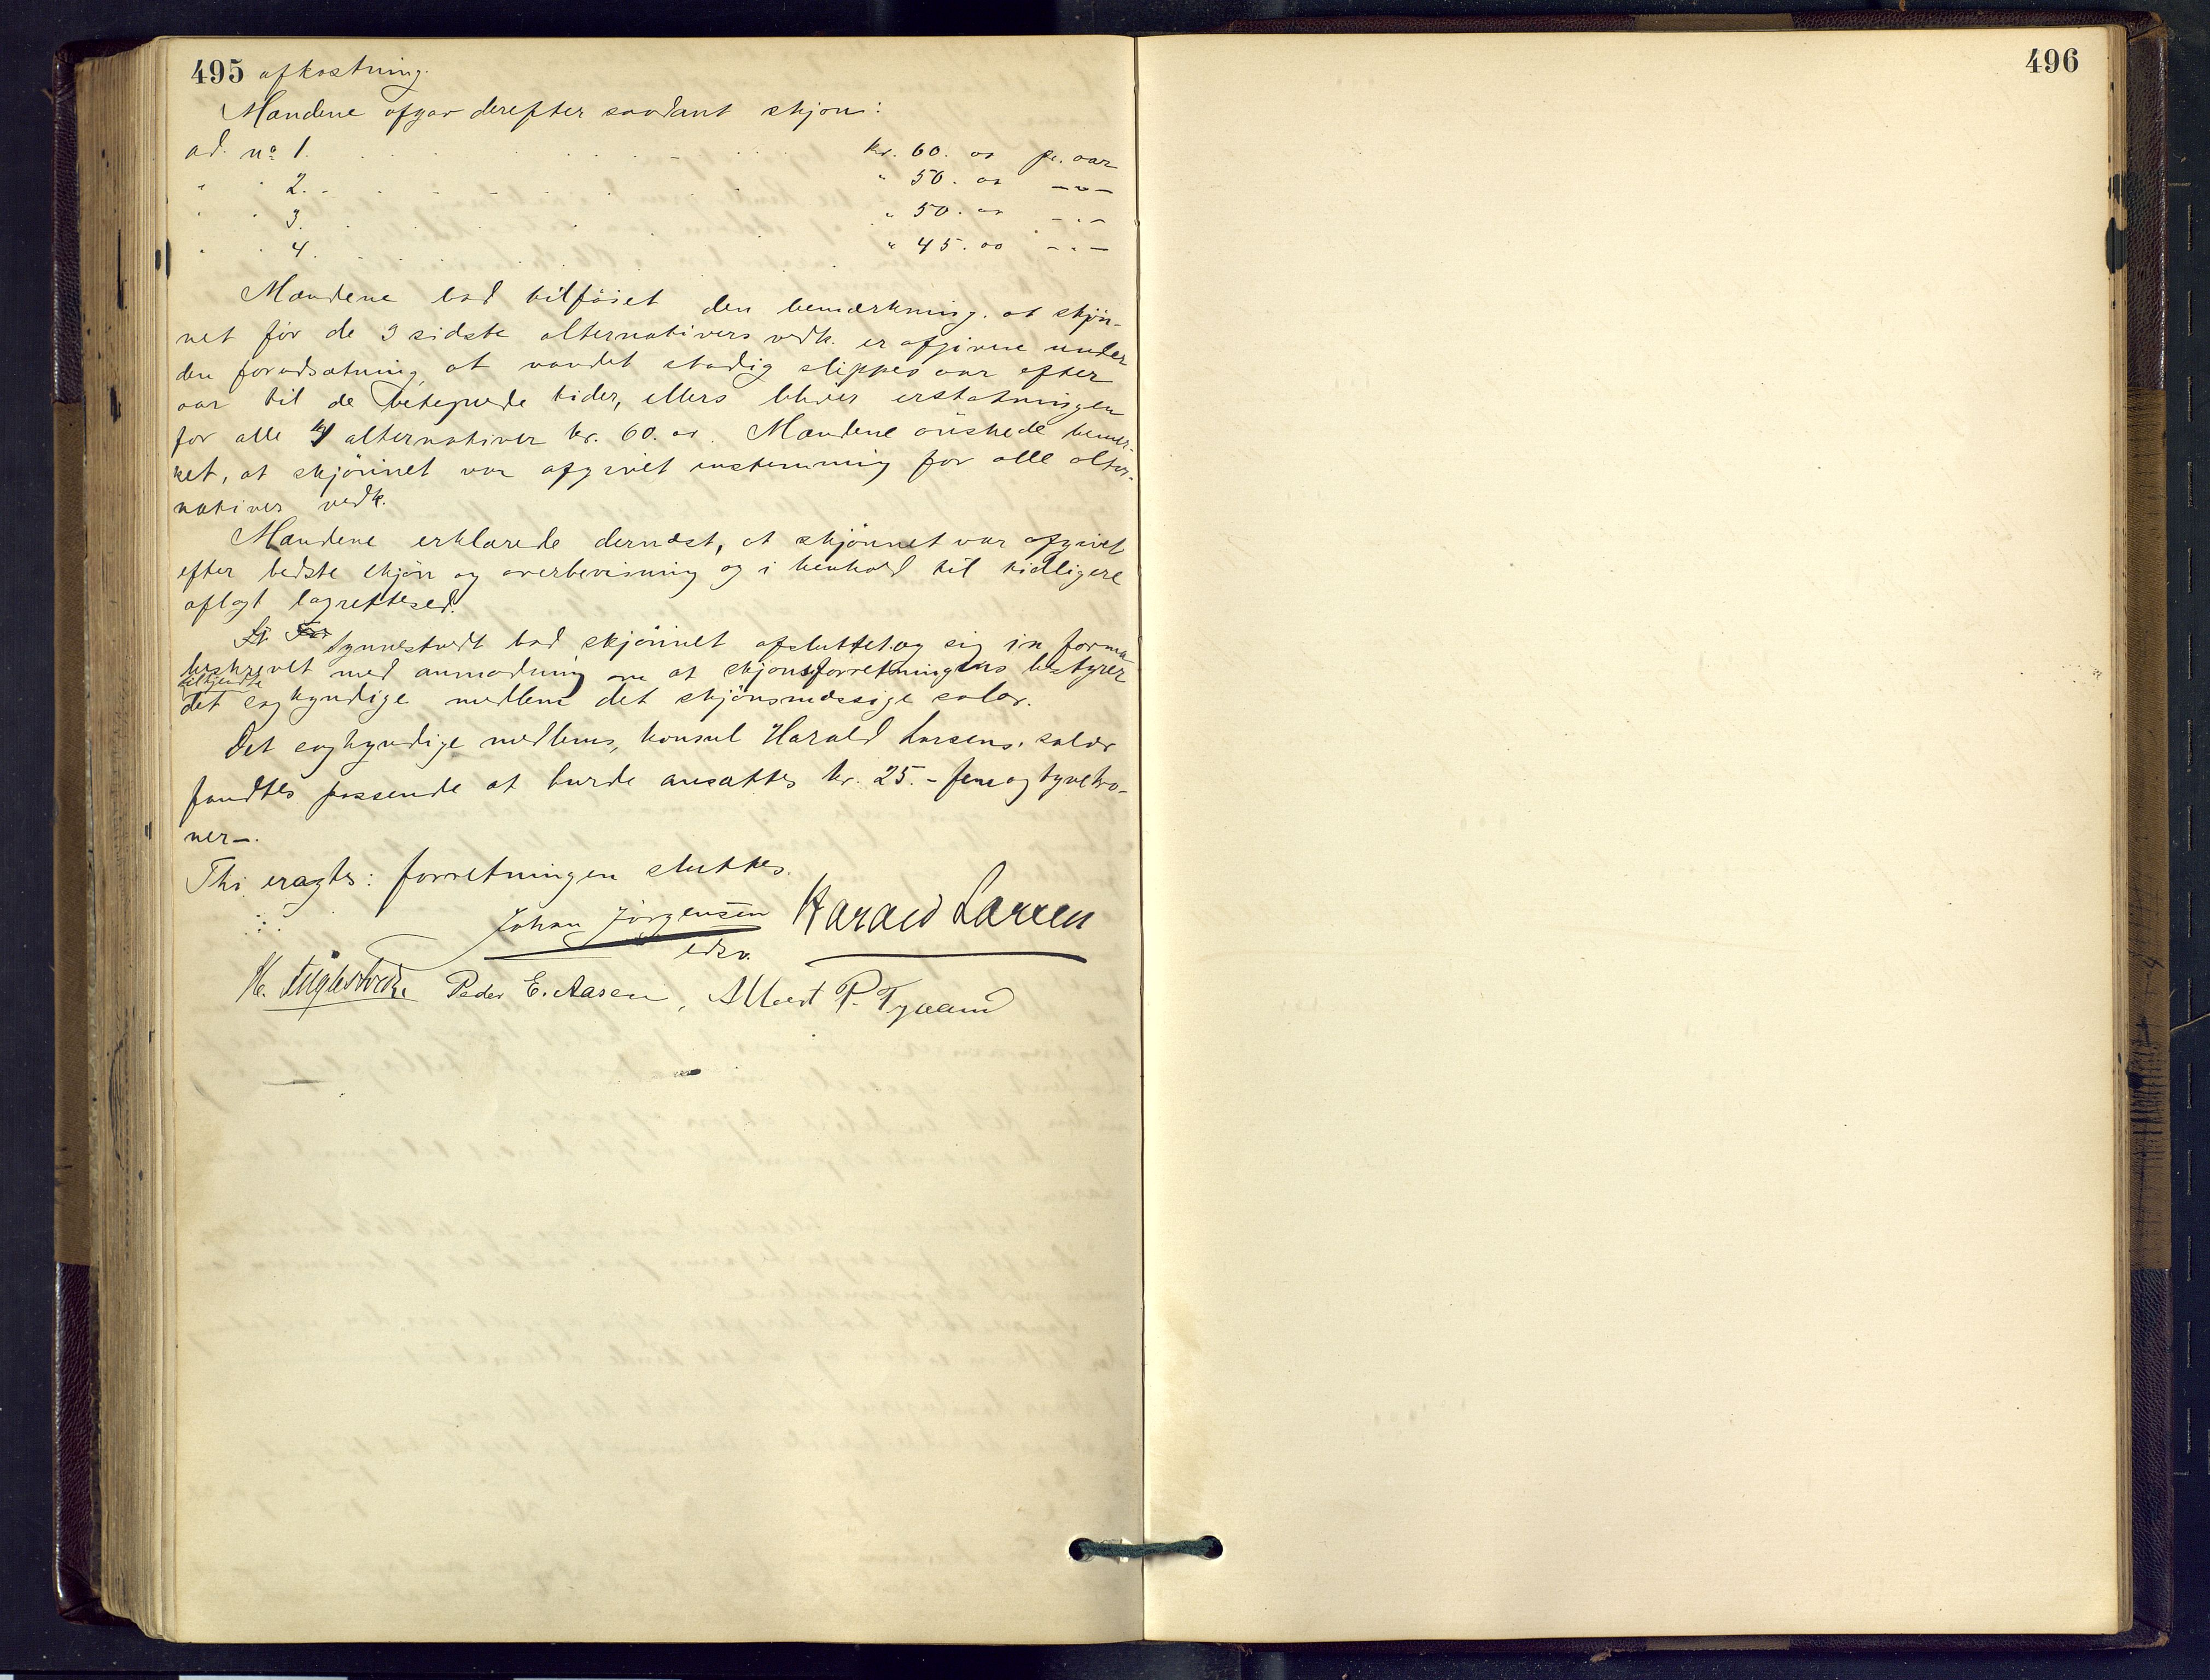 495 afkastning.
Mændene afgav derefter saadant skjøn:
ad. no 1. kr. 60. 00 pr. aar
" " 2. " 50. 00 — " —
" " 3. " 50. 00 — " —
" " 4. " 45. 00 — " —
Mændene bad tilføiet den bemærkning, at skjøn-
net for de 3 sidste alternativers vedk. er afgivne under
den forudsætning, at vandet stadig slippes aar efter
aar til de betegnede tider, ellers bliver erstatningen
for alle 4 alternativer kr. 60. 00. Mændene ønskede bemær-
ket, at skjønnet var afgivet enstemmig for alle alter-
nativers vedk.
Mændene erklærede dernæst, at skjønnet var afgivet
efter bedste skjøn og overbevisning og i henhold til tidligere
aflagt lagrettesed.
Synnestvedt bad skjønnet afsluttet og sig in forma
beskrevet med anmodning om at skjønsforretningens bestyrer
tilkjendte
det sagkyndige medlem det skjønsmæssige salær.
Det sagkyndige medlems, konsul Harald Larsens, salær
fandtes passende at burde ansættes kr. 25.- fem og tyve kro-
ner—.
Thi eragtes: forretningen sluttes.
Johan Jörgensen Harald Larsen
edsv.
Peder E. Aasen, Albert P. Tyvand
496